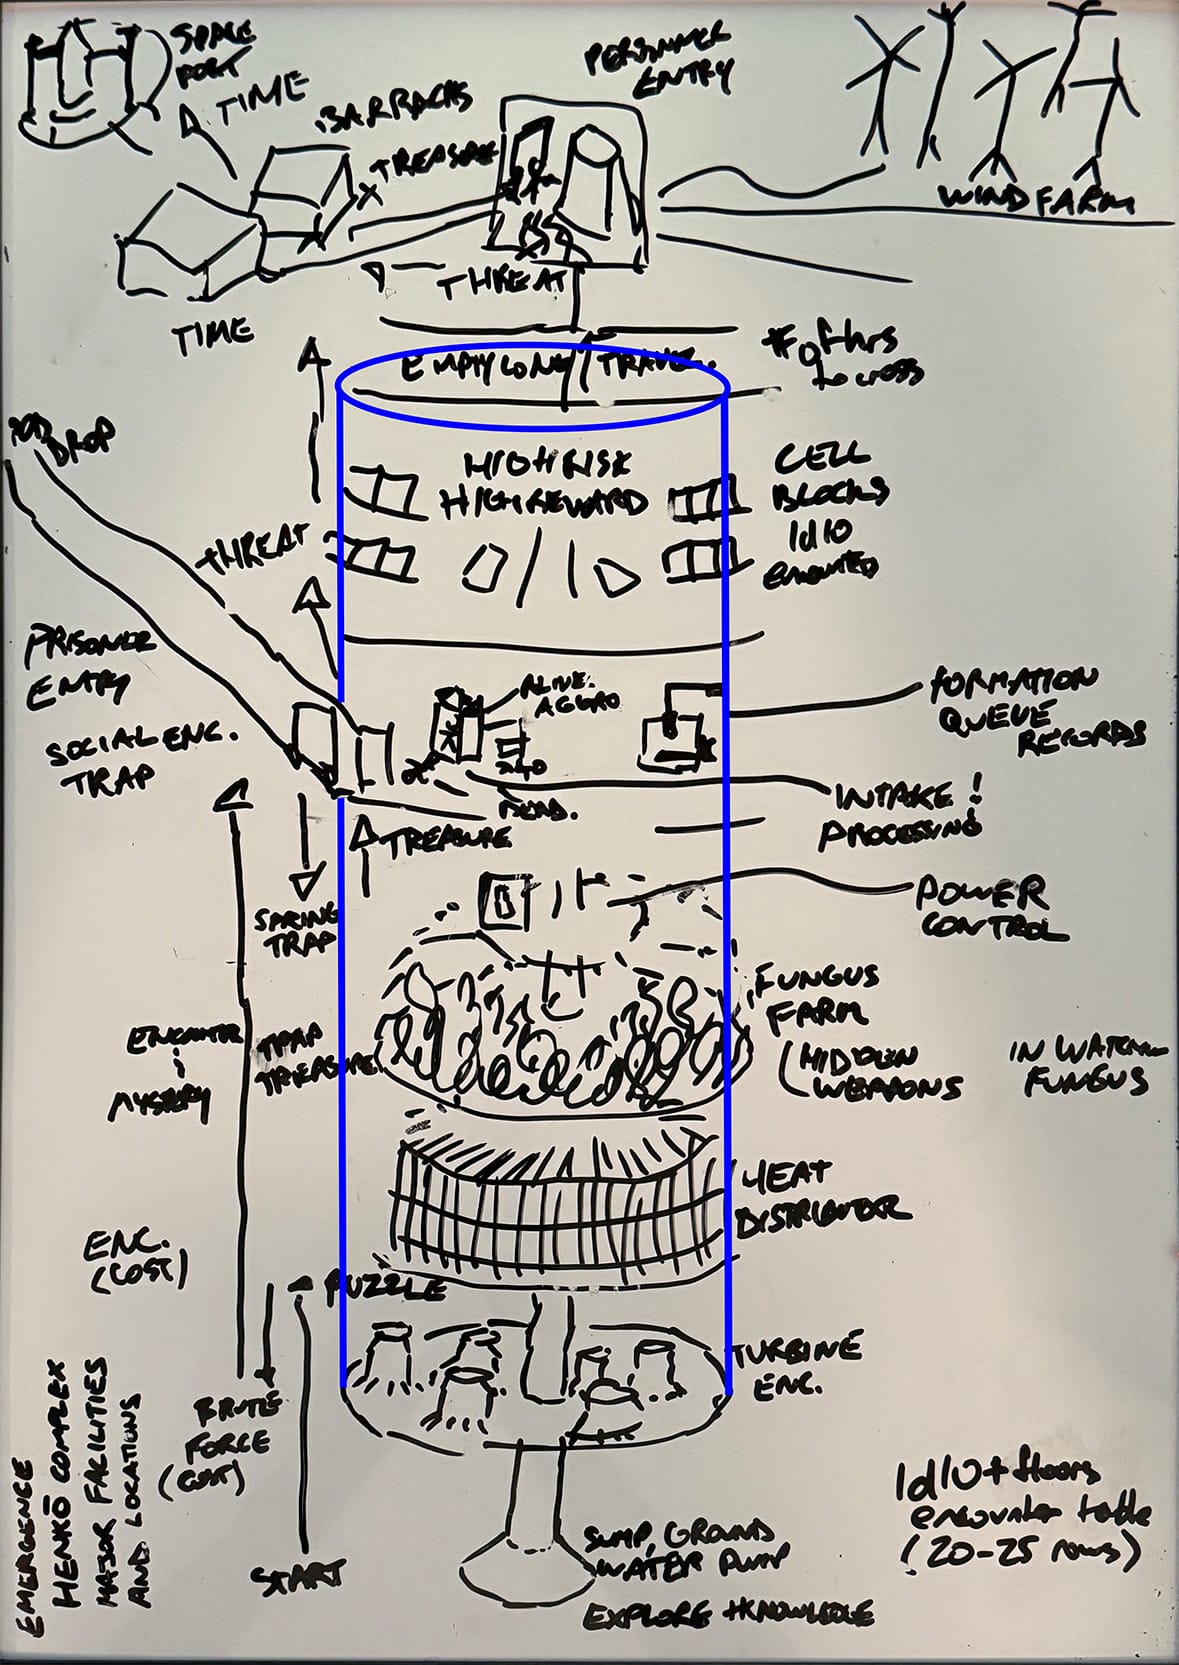 SPACE
PORT
TIME
BARRACKS
TREASURE
PERSONNEL
ENTRY
WIND FARM
THREAT
TIME
EMPTY LONG TRAVEL.
# of hrs
to cross
POD
DROP
HIGH RISK
HIGH REWARD
CELL
BLOCKS
1d10
THREAT
PRISONER
ENTRY
SOCIAL ENC.
TRAP
ALIVE.
AGGRO
DEAD.
FORMATION
QUEUE
RECORDS
INTAKE !
PROCESSING
TREASURE
SPRING
TRAP
POWER
CONTROL
FUNGUS
FARM
(HIDDEN
WEAPONS
IN WATER
FUNGUS
ENCOUNTER
MYSTERY
TRAP
TREASURE
HEAT
DISTRIBUTOR
ENC.
(COST)
PUZZLE
TURBINE
ENC.
BRUTE
FORCE
(COST)
START
SUMP, GROUND
WATER PUMP
EXPLORE + KNOWLEDGE
1d10 + floors
encounter table
(20-25 rows)
EMERGENCE
HENKŌ COMPLEX
MAJOR FACILITIES
AND LOCATIONS